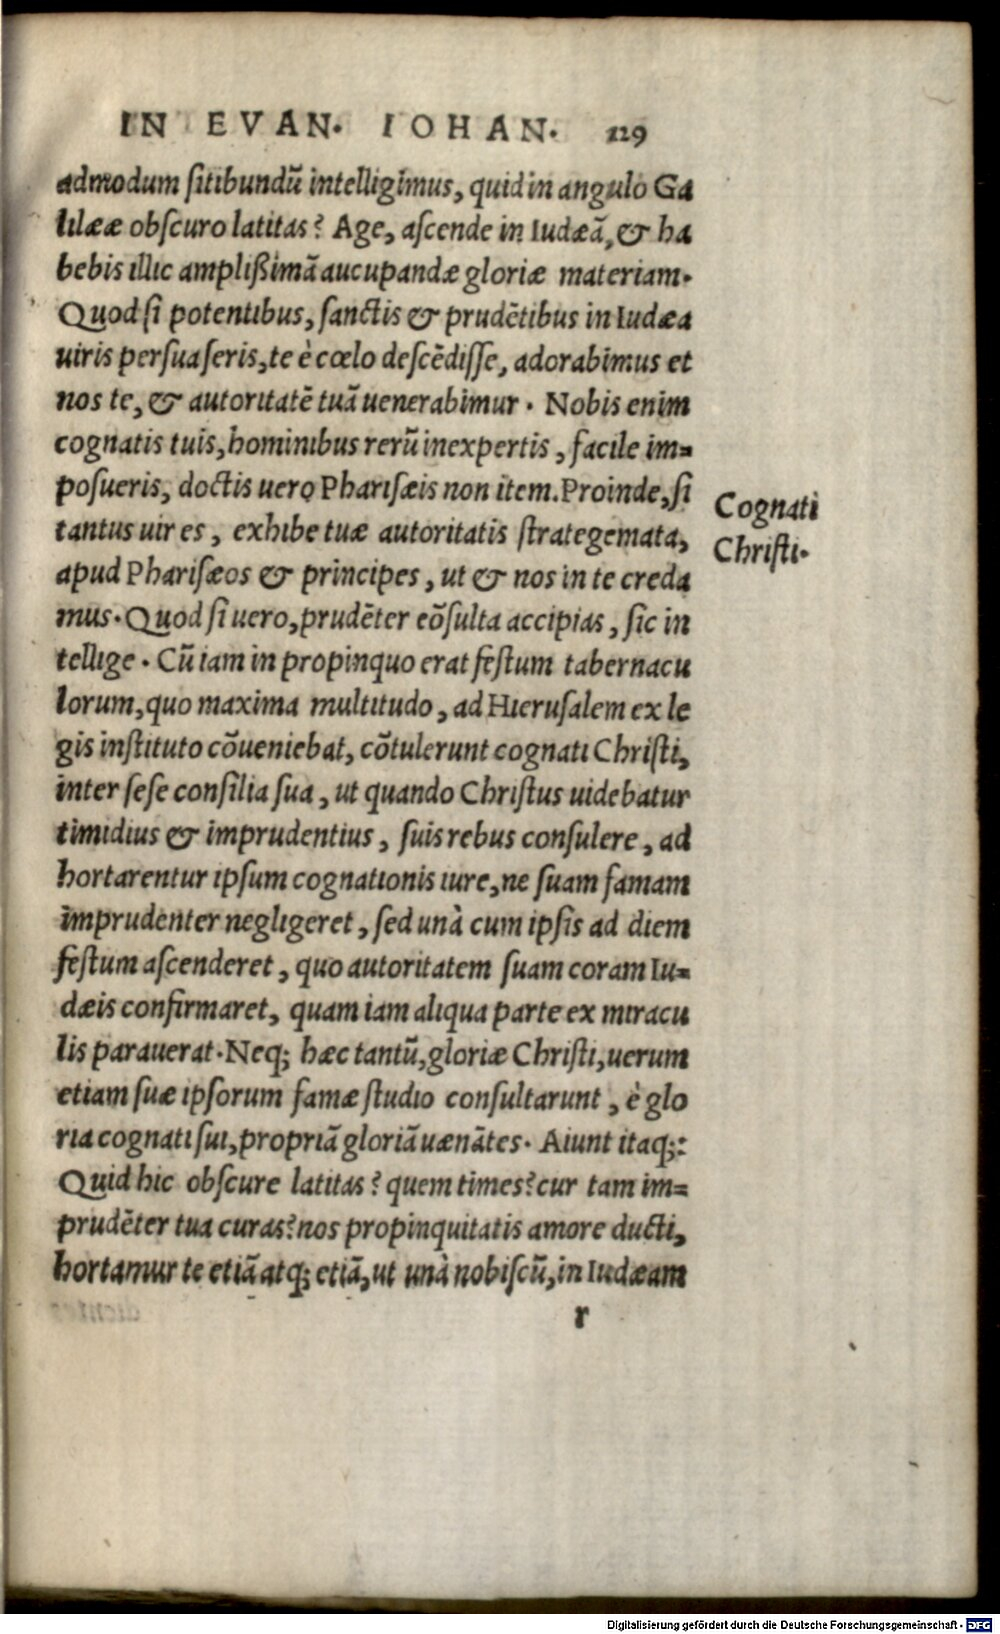 IN EVAN. IOHAN. 129
admodum sitibundũ intelligimus, quid in angulo Ga
lilææ obscuro latitas? Age, ascende in Iudæã, & ha
bebis illic amplißimã aucupandæ gloriæ materiam.
Quod si potentibus, sanctis & prudẽtibus in Iudæa
uiris persuaseris, te è cœlo descẽdisse, adorabimus et
nos te, & autoritatẽ tuã uenerabimur. Nobis enim
cognatis tuis, hominibus rerũ inexpertis, facile im=
posueris, doctis uero Pharisæis non item. Proinde, si
tantus uir es, exhibe tuæ autoritatis strategemata,
apud Pharisæos & principes, ut & nos in te creda
mus. Quod si uero, prudẽter cõsulta accipias, sic in
tellige. Cũ iam in propinquo erat festum tabernacu
lorum, quo maxima multitudo, ad Hierusalem ex le
gis instituto cõueniebat, cõtulerunt cognati Christi,
inter sese consilia sua, ut quando Christus uidebatur
timidius & imprudentius, suis rebus consulere, ad
hortarentur ipsum cognationis iure, ne suam famam
imprudenter negligeret, sed unà cum ipsis ad diem
festum ascenderet, quo autoritatem suam coram Iu=
dæis confirmaret, quam iam aliqua parte ex miracu
lis parauerat. Neq; hæc tantũ, gloriæ Christi, uerum
etiam suæ ipsorum famæ studio consultarunt, è glo
ria cognati sui, propriã gloriã uænãtes. Aiunt itaq;:
Quid hic obscure latitas? quem times? cur tam im=
prudẽter tua curas? nos propinquitatis amore ducti,
hortamur te etiã atq; etiã, ut unà nobiscũ, in Iudæam
r
Cognati
Christi.
Digitalisierung gefördert durch die Deutsche Forschungsgemeinschaft - DFG